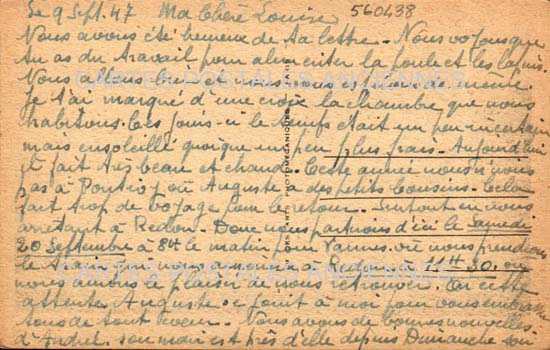 Le 9 Sept. 47 Ma Chère Louise 560438
Nous avons été heureux de ta lettre. Nous voyons que
tu as du travail pour alimenter la poule et les lapins.
Nous allons bien et vous espérons de même.
Je t'ai marqué d'une croix la chambre que nous
habitons. Ces jours-ci le temps était un peu incertain
mais ensoleillé quoique un peu plus frais. Aujourd'hui
il fait très beau et chaud. Cette année nous n'irons
pas à Pontivy où Auguste a des petits cousins. Cela
fait trop de voyage pour le retour. Surtout en nous
arrêtant à Redon. Donc nous partirons d'ici le Samedi
20 Septembre à 8H le matin pour Vannes où nous prendrons
le train qui nous amènera à Redon à 11H30 où
nous aurons le plaisir de nous retrouver. En cette
attente Auguste se joint à moi pour vous embrasser
tous de tout coeur. Nous avons de bonnes nouvelles
d'Andrée. son mari est près d'elle depuis Dimanche soir
CARTES POSTALES ANCIENNES
CARTES POSTALES ANCIENNES
PHOTOMECANIQUES